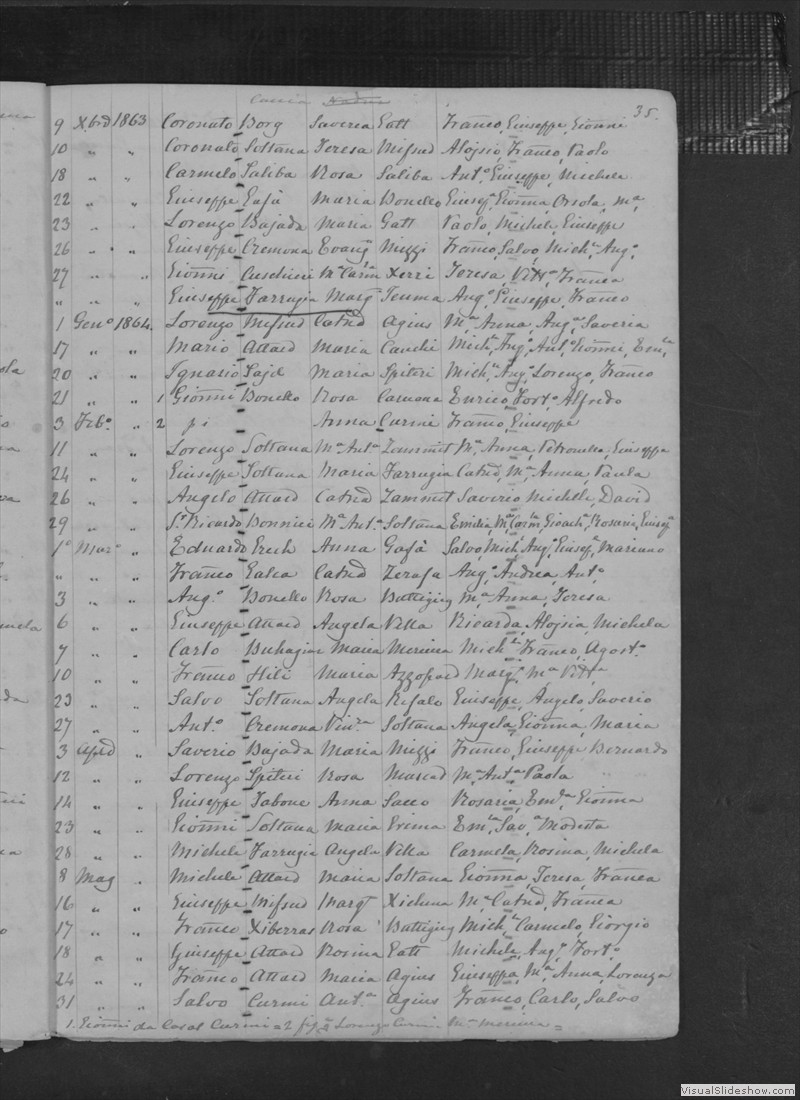 35.
9 Xbre 1863 Coronato Borg Saveria Gatt Franco, Giuseppe, Gionni
10 " " Coronato Soltana Teresa Mifsud Aloisio, Franco, Paolo
18 " " Carmelo Saliba Rosa Saliba Anto, Giuseppe, Michele
22 " " Giuseppe Gafà Maria Bonello Giusepe, Gionna, Orsola, Ma
23 " " Lorenzo Bajada Maria Gatt Paolo, Michele, Giuseppe
26 " " Giuseppe Cremona Evang Mizzi Franco, Salvo, Miche, Ango
27 " " Gionni Cuschieri Ma Carma Xerri Teresa, Vitta, Franca
" " " Giuseppe Farrugia Marga Teuma Ango, Giuseppe, Franco
1 Geno 1864 Lorenzo Mifsud Catna Agius Ma Anna, Anga, Saveria
17 " " Mario Attard Maria Cauchi Miche, Ango, Anto, Gionni, Emla
20 " " Ignazio Said Maria Spiteri Miche, Ango, Lorenzo, Franco
21 " " 1 Gionni Bonello Rosa Carmona Enrico, Forto, Alfredo
3 Febo " 2 Anna Curmi Franco, Giuseppe
11 " " Lorenzo Soltana Ma Anta Zammit Ma Anna, Petronilla, Giuseppa
24 " " Giuseppe Soltana Maria Farrugia Catna, Ma Anna, Paula
26 " " Angelo Attard Catna Zammit Saverio, Michele, David
29 " " Sr Ricardo Bonnici Ma Anta Soltana Emilia, Ma Carma, Gioacha, Rosaria, Giusepa
1o Maro " Eduardo Grech Anna Gafà Salvo, Miche, Ango, Giusepe, Mariano
" " " Franco Galea Catna Zerafa Ango, Andrea, Anto
3 " " Ango Bonello Rosa Battigieg Ma Anna, Teresa
6 " " Giuseppe Attard Angela Vella Ricarda, Aloisia, Michela
7 " " Carlo Buhagiar Maria Mercieca Miche, Franco, Agosto
10 " " Franco Hili Maria Azzopard Marga, Ma Vitta
23 " " Salvo Soltana Angela Refalo Giuseppe, Angelo, Saverio
27 " " Anto Cremona Vinza Soltana Angela, Gionna, Maria
3 Aple " Saverio Bajada Maria Mizzi Franco, Giuseppe, Bernardo
12 " " Lorenzo Spiteri Rosa Muscad Ma Anta Paola
14 " " Giuseppe Tabone Anna Sacco Rosaria, Emla, Gionna
23 " " Gionni Soltana Maria Grima Emla, Sava, Modesta
28 " " Michele Farrugia Angela Vella Carmela, Rosina, Michela
8 Mag " Michele Attard Maria Soltana Gionna, Teresa, Franca
16 " " Giuseppe Mifsud Marga Xicluna Ma Catna, Franca
17 " " Franco Xiberras Rosa Battigieg Miche, Carmelo, Giorgio
18 " " Giuseppe Attard Rosina Gatt Michele, Ango, Forto
24 " " Franco Attard Maria Agius Giuseppa, Ma Anna, Lorenza
31 " " Salvo Curmi Anta Agius Franco, Carlo, Salvo
1. Gionni da Casal Curmi = 2 Lorenzo Curmi
VisualSlideshow.com